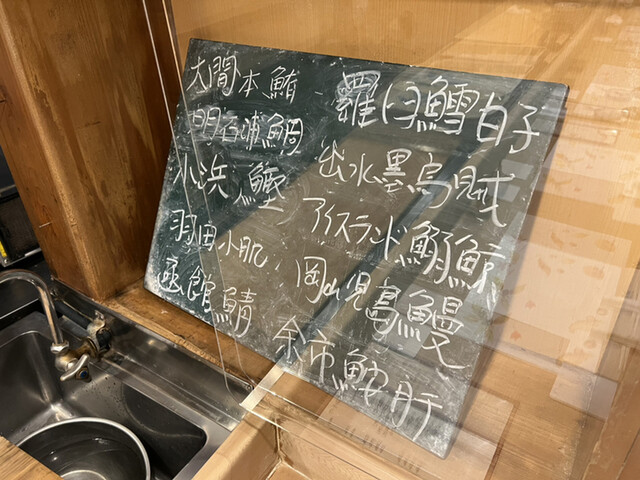 大間本鮪
明石浦鯛
小浜鰹
羽田小肌
函館鯖
羅臼鱈白子
出水墨烏賊
アイスランド鰯鯨
岡山児島鰻
余市鮟肝